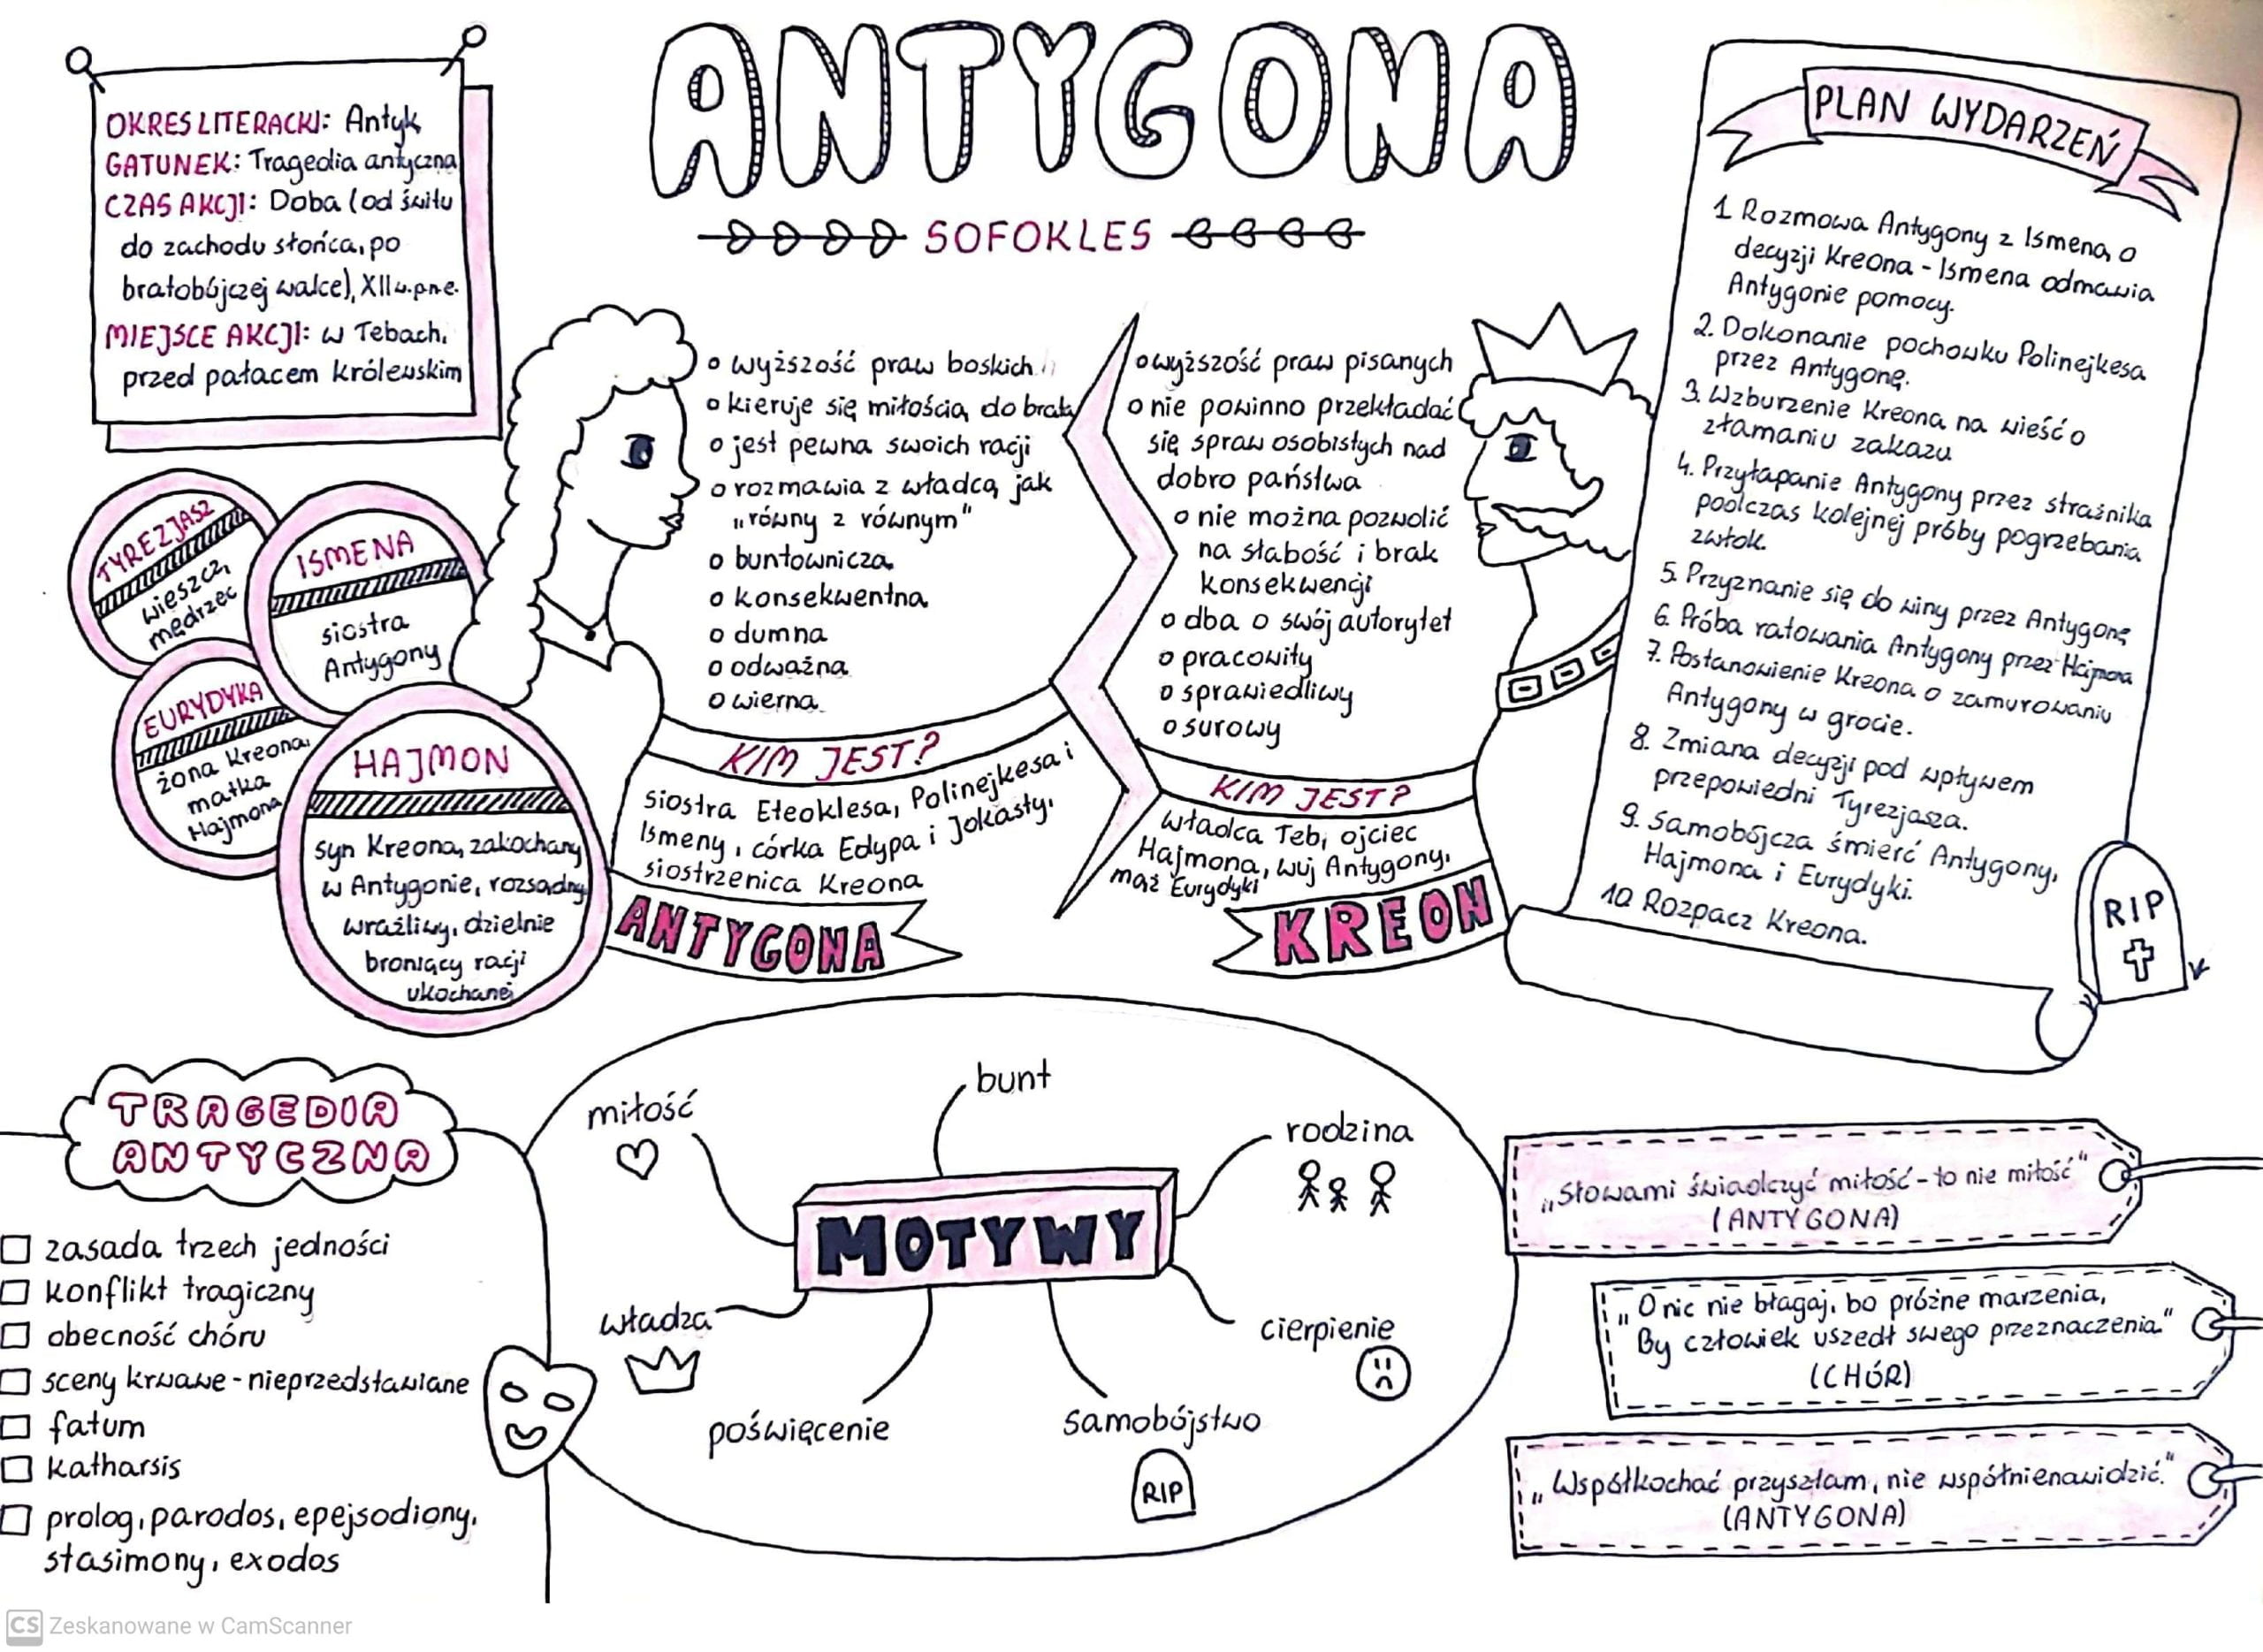 ANTYGONA
SOFOKLES
OKRES LITERACKI: Antyk
GATUNEK: Tragedia antyczna
CZAS AKCJI: Doba (od świtu
do zachodu słońca, po
bratobójczej walce), XII w. p.n.e.
MIEJSCE AKCJI: w Tebach,
przed pałacem królewskim
TYREZJASZ
wieszcz,
mędrzec
ISMENA
siostra
Antygony
EURYDYKA
żona Kreona,
matka
Hajmona
HAJMON
syn Kreona, zakochany
w Antygonie, rozsądny
wrażliwy, dzielnie
broniący racji
ukochanej
wyższość praw boskich
kieruje się miłością do brata
jest pewna swoich racji
rozmawia z władcą jak
„równy z równym"
buntownicza
konsekwentna
dumna
odważna
wierna
KIM JEST?
siostra Eteoklesa, Polinejkesa i
Ismeny, córka Edypa i Jokasty,
siostrzenica Kreona
ANTYGONA
wyższość praw pisanych
nie powinno przekładać
się spraw osobistych nad
dobro państwa
nie można pozwolić
na słabość i brak
konsekwencji
dba o swój autorytet
pracowity
sprawiedliwy
surowy
KIM JEST?
władca Teb, ojciec
Hajmona, wuj Antygony,
mąż Eurydyki
KREON
PLAN WYDARZEŃ
1 Rozmowa Antygony z Ismeną o
decyzji Kreona - Ismena odmawia
Antygonie pomocy.
2. Dokonanie pochowku Polinejkesa
przez Antygonę.
3. Wzburzenie Kreona na wieść o
złamaniu zakazu
4. Przyłapanie Antygony przez strażnika
podczas kolejnej próby pogrzebania
zwłok.
5. Przyznanie się do winy przez Antygonę
6. Próba ratowania Antygony przez Hajmona
7. Postanowienie Kreona o zamurowaniu
Antygony w grocie.
8. Zmiana decyzji pod wpływem
przepowiedni Tyrezjasza.
9. Samobójcza śmierć Antygony,
Hajmona i Eurydyki.
10 Rozpacz Kreona.
RIP
TRAGEDIA
ANTYCZNA
zasada trzech jedności
konflikt tragiczny
obecność chóru
sceny krwawe - nieprzedstawiane
fatum
katharsis
prolog, parodos, epejsodiony,
stasimony, exodos
MOTYWY
miłość
bunt
rodzina
władza
cierpienie
poświęcenie
samobójstwo
RIP
„Słowami świadczyć miłość - to nie miłość"
(ANTYGONA)
„O nic nie błagaj, bo próżne marzenia,
By człowiek uszedł swego przeznaczenia."
(CHÓR)
„Współkochać przyszłam, nie współnienawidzić."
(ANTYGONA)
CS Zeskanowane w CamScanner